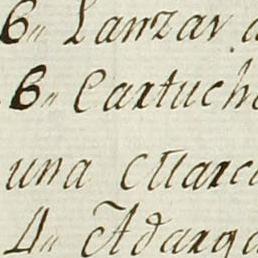 6„ Lanzar
6„ Cartuch
una Marc
4„ Adarga